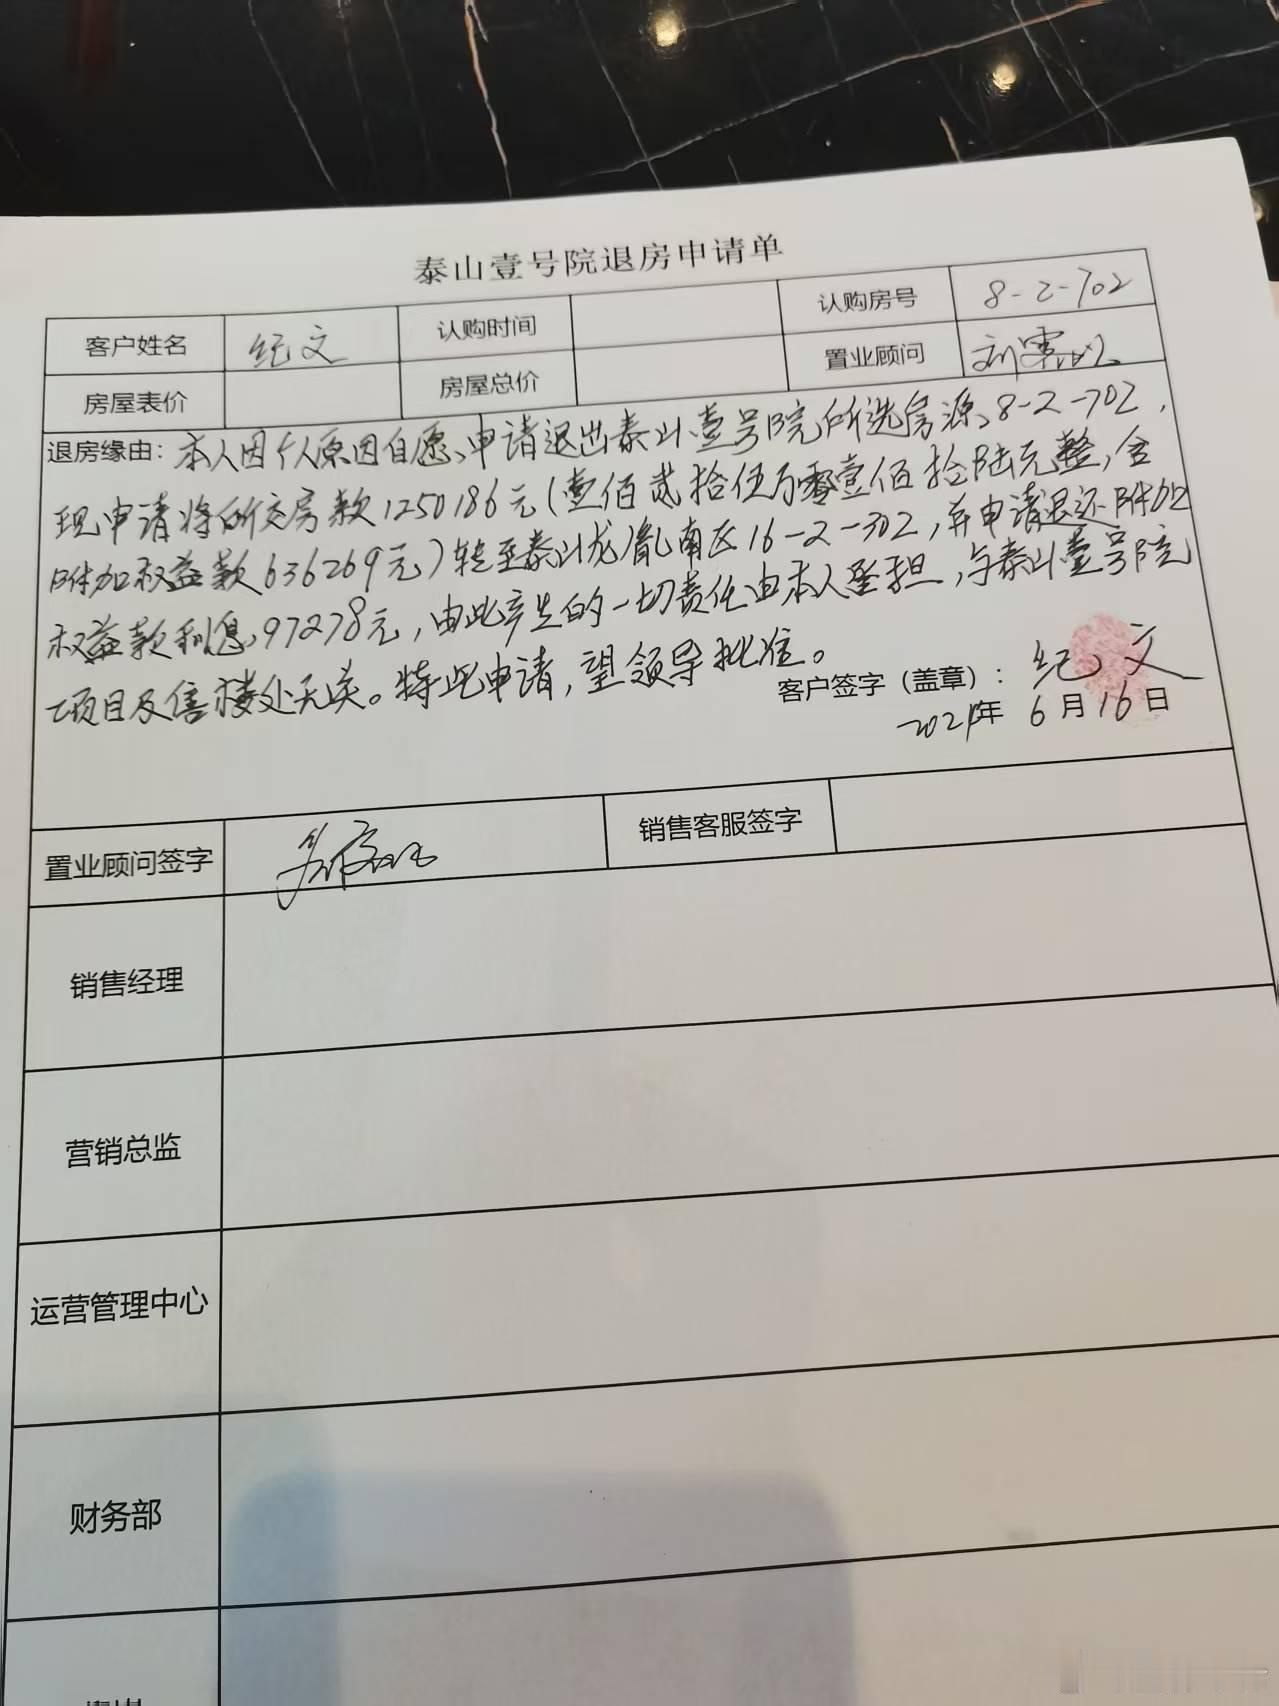 泰山壹号院退房申请单
客户姓名 纪文 认购时间 认购房号 8-2-702
房屋表价 房屋总价 置业顾问
退房缘由：本人因个人原因自愿、申请退出泰山壹号院所选房源、8-2-702，
现申请将所交房款1250186元（壹佰贰拾伍万零壹佰拾陆元整，含
附加权益款636269元）转至泰山龙胤南区16-2-302，并申请退还附加
权益款利息97278元，由此产生的一切责任由本人承担，与泰山壹号院
项目及售楼处无关。特此申请，望领导批准。
客户签字（盖章）： 纪文
2021年 6月16日
置业顾问签字 销售客服签字
销售经理
营销总监
运营管理中心
财务部